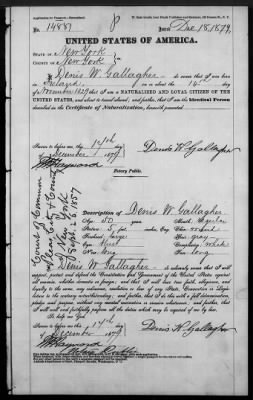 No. 14887 Issued Dec 18, 1879
UNITED STATES OF AMERICA.
STATE OF New York
COUNTY OF New York
I, Denis W. Gallagher do swear that I was born
in Ireland on the 1st day
of November 1829 that I am a NATURALIZED AND LOYAL CITIZEN OF THE
UNITED STATES, and about to travel abroad; and further, that I am the Identical Person
described in the Certificate of Naturalization, herewith presented.
Sworn to before me this 17th day
of December 1879
Denis W. Gallagher
Notary Public.
Court of Common
Pleas City & County
of New York
Description of Denis W. Gallagher
Age: 50 years
Stature: 5 feet
Forehead: large
Eyes:
Nose:
Mouth:
Chin:
Hair: gray
Complexion:
Face: long
I, Denis W. Gallagher do solemnly swear that I will
support, protect and defend the Constitution and Government of the United States against
all enemies, whether domestic or foreign; and that I will bear true faith, allegiance and
loyalty to the same, any ordinance, resolution or law of any State, Convention or Legis-
lature to the contrary notwithstanding; and further, that I do this with a full determination,
pledge and purpose, without any mental reservation or evasion whatsoever; and further, that
I will well and faithfully perform all the duties which may be required of me by law.
So help me God.
Sworn to before me this 17th day
of December 1879
Denis W. Gallagher
Notary Public